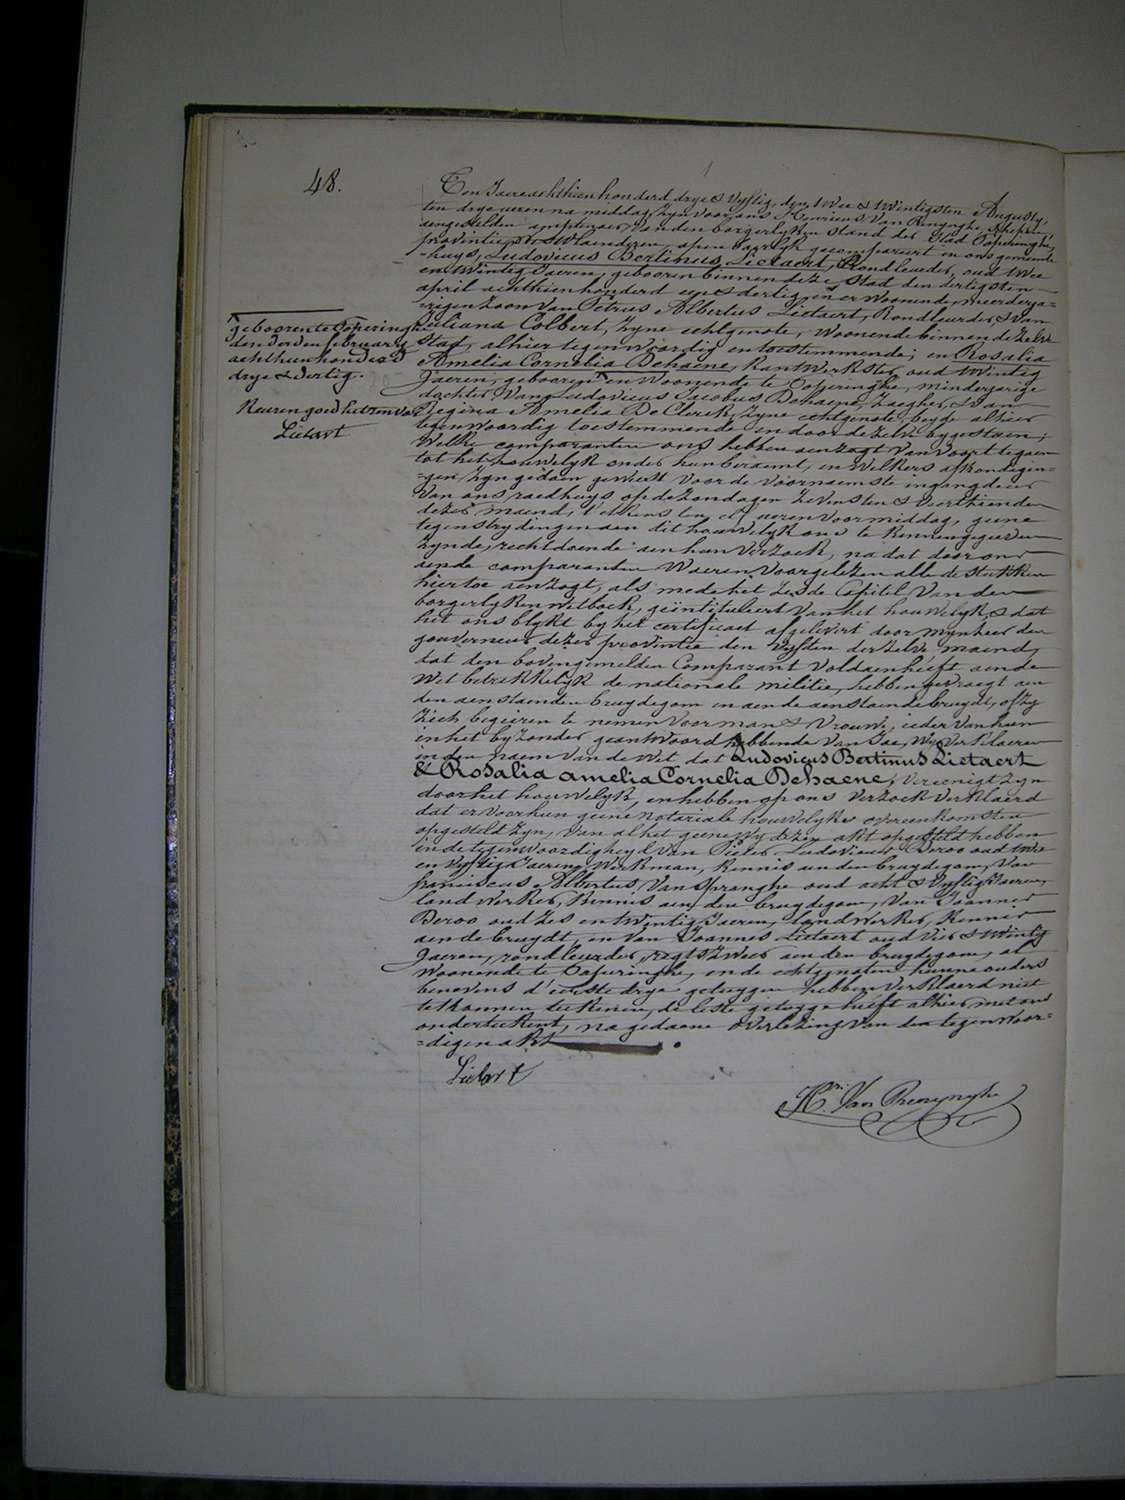 48.
Ten Jaere achthien honderd drye & vyftig, den twee & twintigsten Augusty,
ten drye uren na middag, zyn voor ons Henricus Van Renynghe, schepen,
aengestelden amptenaer van den borgerlyken stand der stad Poperinghe,
provintie West Vlaenderen, openbaarlyk gecompareert in ons gemeente
-huys, Ludovicus Bertinus Lietaert, Rondleurder, oud twee
en twintig Jaeren, gebooren binnen deze stad den dertigsten
april achthien honderd een & dertig, en er woonende, meerderja-
-rigen zoon van Petrus Albertus Lietaert, Rondleurder & van
Juliana Colbert, zyne echtgenote, woonende binnen de zelve
stad, alhier tegenwoordig en toestemmende; en Rosalia
Amelia Cornelia Dehaene, Kantwerkster, oud twintig
Jaeren, gebooren en woonende te Poperinghe, minderjarige
dochter van Ludovicus Jacobus Dehaene, Zaegher, & van
Regina Amelia De Clerck, zyne echtgenote, beyde alhier
tegenwoordig toestemmende en door de zelve bygestaen;
Welke comparanten ons hebben aenzogt van voort te gaen
tot het houwelyk onder hun beraemt, en welkers afkondigin-
-gen zyn gedaen geweest voor de voornaemste ingangdeur
van ons raedhuys op de zondagen zevensten & veerthienden
dezer maend, t'elkens ten elf ueren voormiddag, geene
tegenstrydingen aen dit houwelyk ons te kennen gegeven
zynde, rechtdoende aen hun verzoek, na dat door ons
aende comparanten waeren voorgelezen alle de stukken
hiertoe aenzogt, als mede het zesde Capitel van den
borgerlyken wetboek, geïntituleert van het houwelyk, & dat
het ons blykt by het certificaet afgelevert door mynheer den
gouverneur dezer provintie den vyften der zelve maend,
dat den bovengemelden Comparant voldaen heeft aende
Wet betrekkelyk de nationale militie, hebben gevraegt aen
den aenstaenden bruydegom en aende aenstaende bruydt, of zy
zich begeeren te nemen voor man & vrouw, ieder van hun
en het byzonder geantwoord hebbende van Jae, Wy verklaeren
in den naem van de Wet dat Ludovicus Bertinus Lietaert
& Rosalia amelia Cornelia Dehaene, vereenigt zyn
door het houwelyk, en hebben op ons verzoek verklaerd
dat er voor hun geene notariale houwelyks overeenkomsten
opgesteld zyn, van al het geene wy dezen akt opgesteld hebben
in de tegenwoordigheyd van Pieter Ludovicus Deroo oud twee
en vyftig Jaeren, Werkman, Kennis aen den bruydegom, van
franciscus Albertus Van Spranghe oud acht & vyftig Jaeren,
landwerker, Kennis aen den bruydegom, Van Joannes
Deroo oud zes en twintig Jaeren, landwerker, Kennis
aen de bruydt, en van Joannes Lietaert oud vier & twintig
Jaeren, rondleurder, regtszweer aen den bruydegom, al
woonende te Poperinghe, en de echtgenoten hunne ouders
benevens d'eerste drye getuygen hebben verklaerd niet
te konnen teekenen, de leste getuyge heeft alhier met ons
onderteekent, na gedaene overlezing van den tegenwoor-
-digen akt.
Lietart
Hri. Van Renynghe
gebooren te Poperinghe
den derden february
achthien honderd
drye & dertig.
Keuren goed het renvoi
Lietart